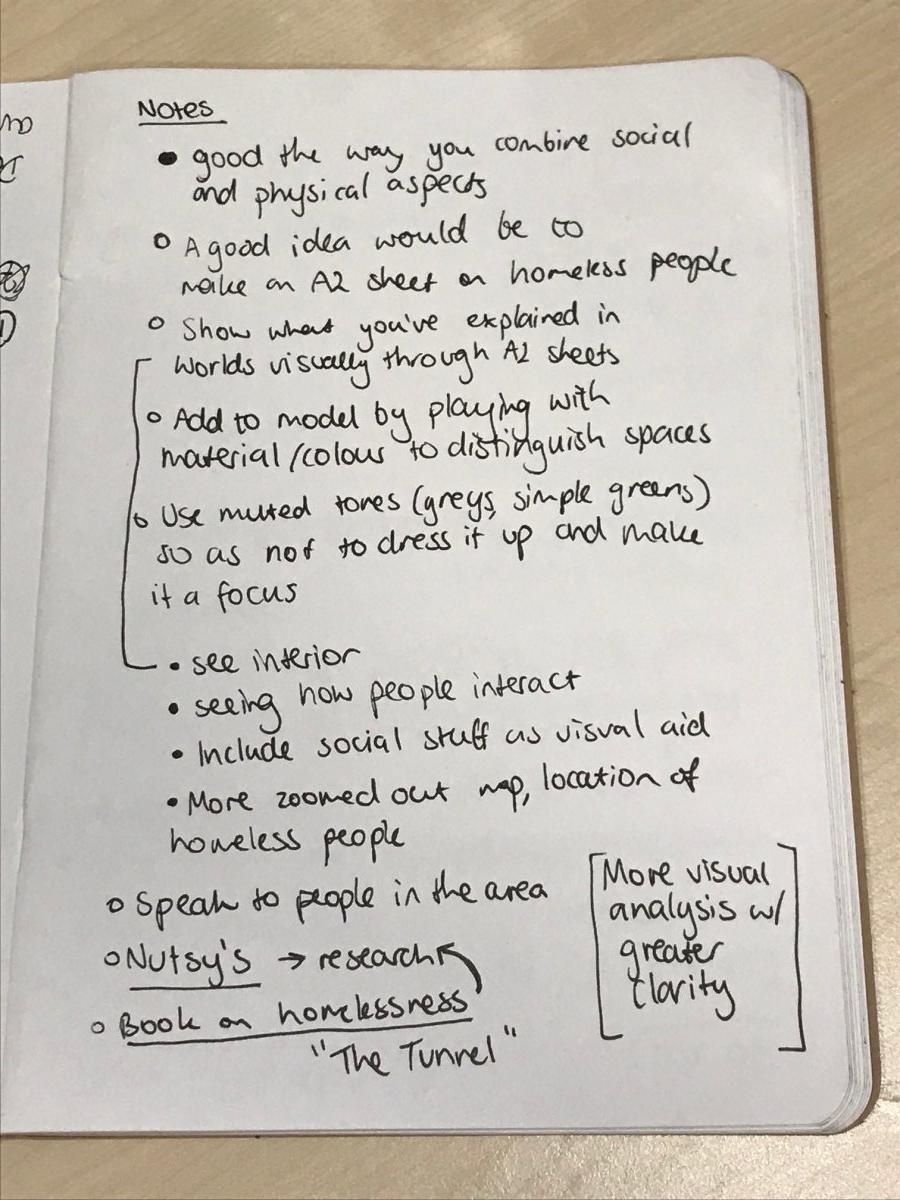 Notes
● good the way you combine social
and physical aspects
○ A good idea would be to
make an A2 sheet on homeless people
○ Show what you've explained in
worlds visually through A2 sheets
○ Add to model by playing with
material/colour to distinguish spaces
○ Use muted tones (greys, simple greens)
so as not to dress it up and make
it a focus
• see interior
• seeing how people interact
• Include social stuff as visual aid
• More zoomed out map, location of
homeless people
○ Speak to people in the area
○ Nutsy's → research
○ Book on homelessness
"The Tunnel"
[More visual
analysis w/
greater
clarity]